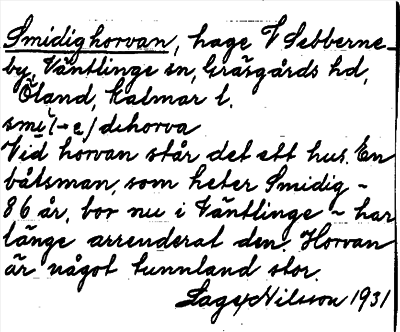 Smidighorvan, hage V Sebberne-
by, Väntlinge sn, Gräsgårds hd,
Öland, Kalmar l.
smi(-e)dihorva
Vid horvan står det ett hus. En
båtsman, som heter Smidig -
86 år, bor nu i Väntlinge - har
länge arrenderat den. Horvan
är något tunnland stor.
Nilsson 1931